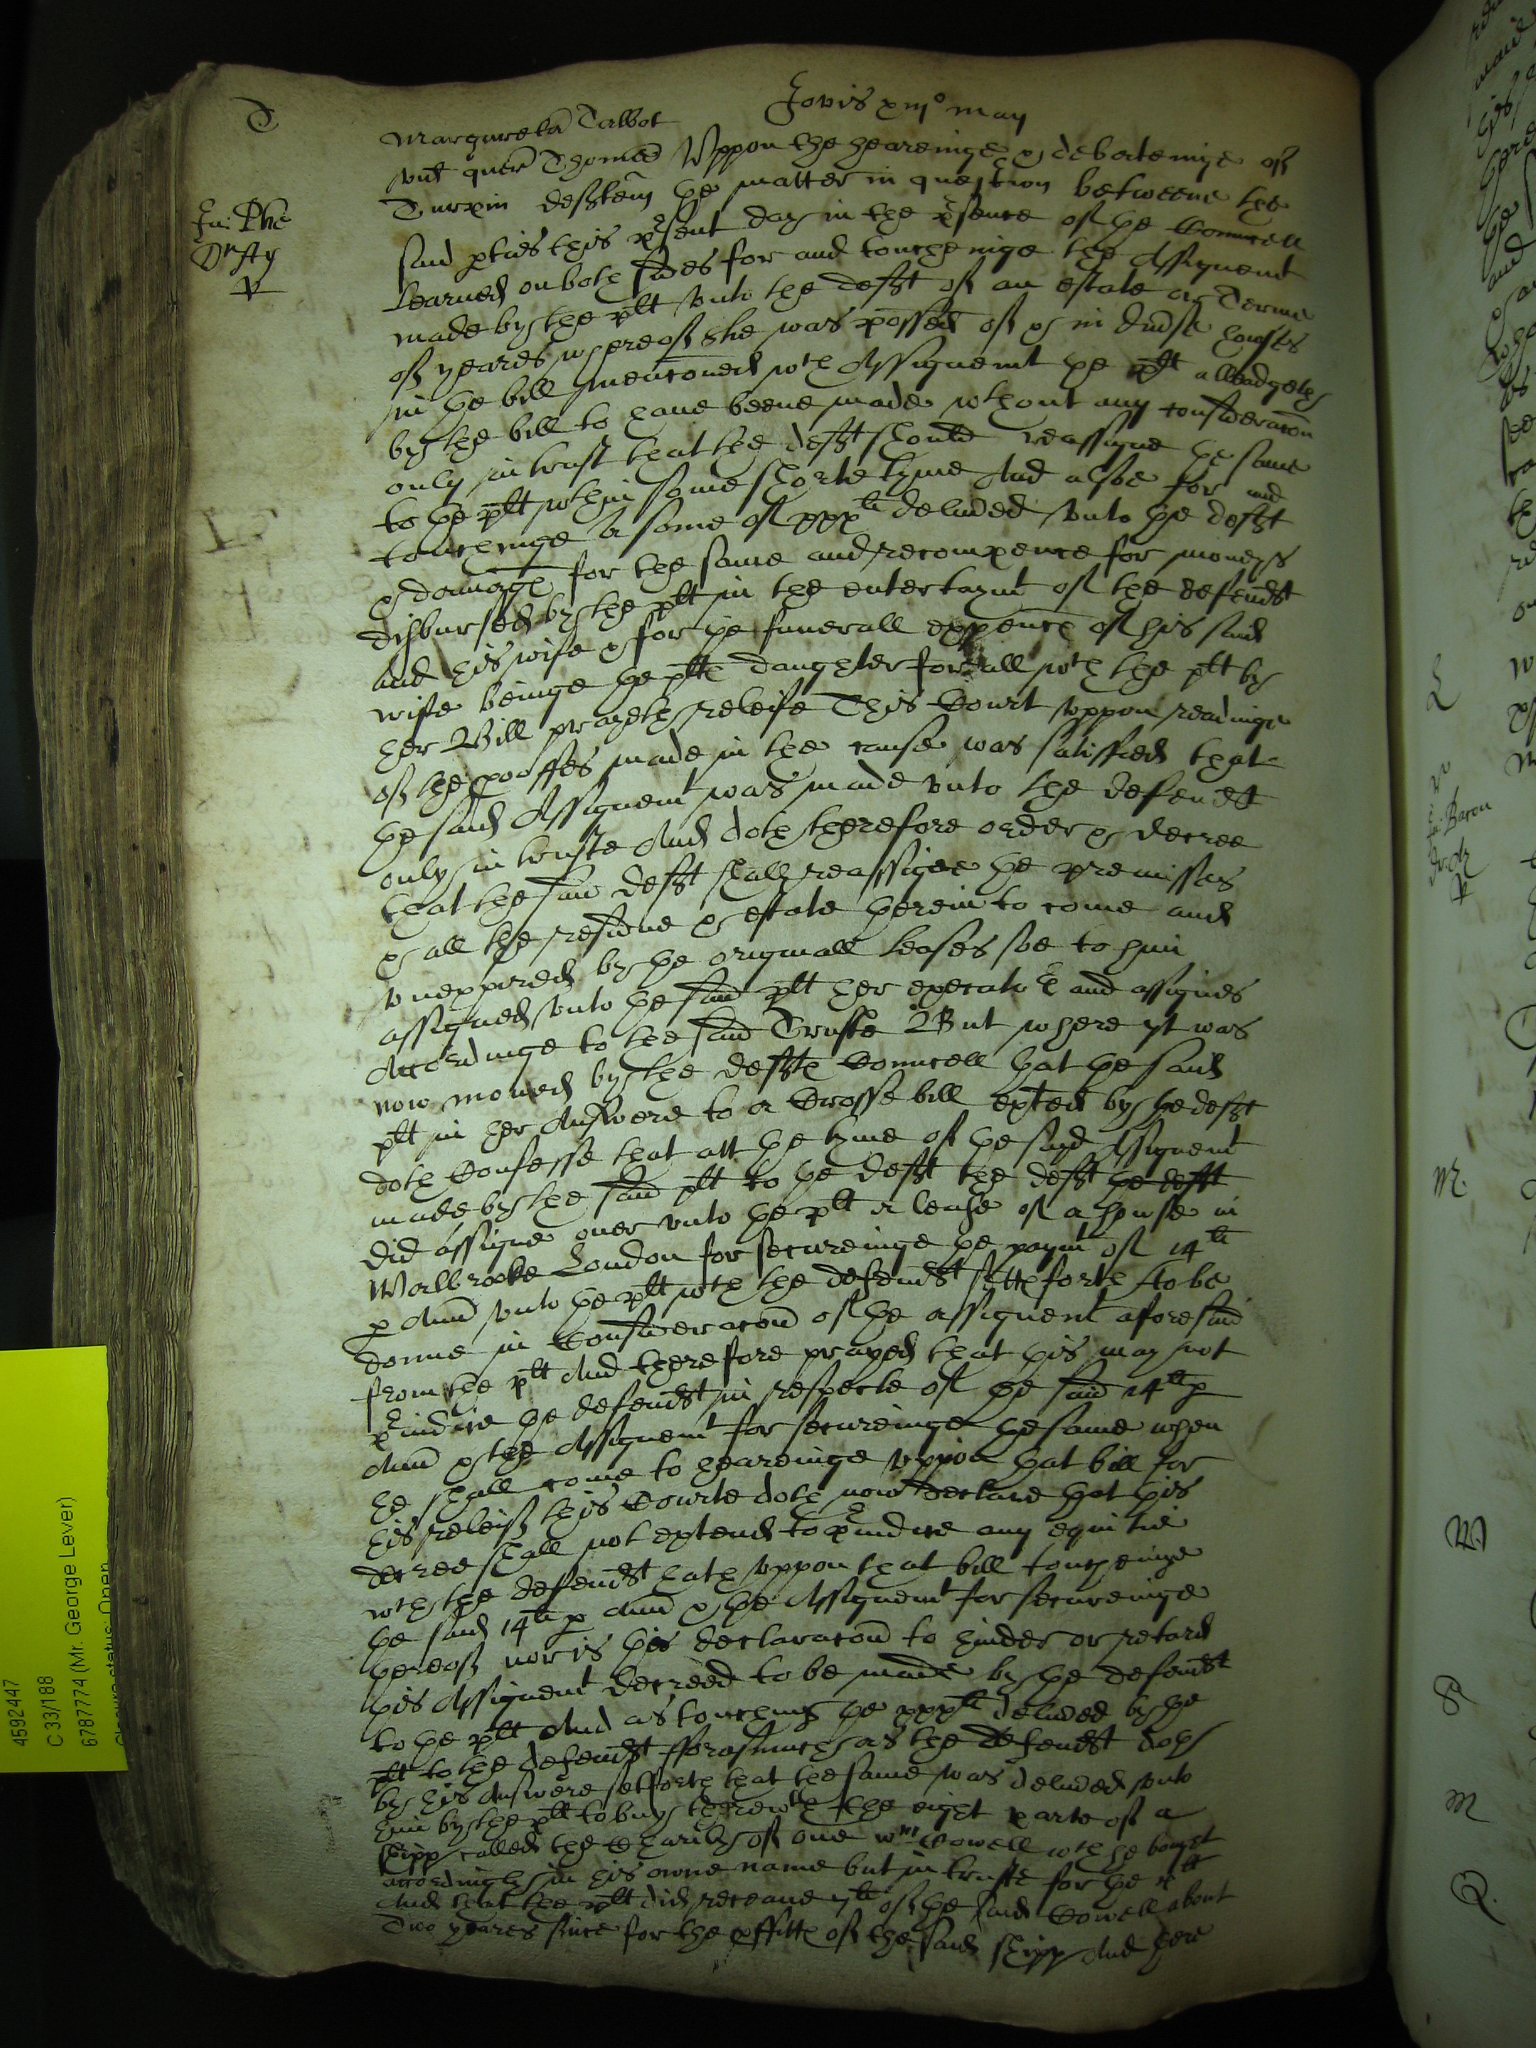 T
Jovis xiij° maij
Margareta Talbot
vid quer Thomas Uppon the heareinge & debateinge of
Turpin defdtem ye matter in question betweene the
Ju: Phe
said pties this psent day in the psence of ye Councell
Learned on both sides for and toucheinge the Assignemt
made by the plt unto the defdt of an estate or Terme
of yeares whereof she was possed of & in divse howses
in ye bill menconed wch Assignemt ye plt alleadgeth
by the bill to have beene made wthout any consideracon
only in trust that the defdt should reassigne ye same
to ye plt wthin some shorte tyme And alsoe for and
toucheinge a some of xxxli delivered unto ye defdt
& damage for the same and recompence for moneys
disbursed by the plt in the entertaynt of the defendt
and his wife & for ye funerall expence of his said
wife beinge ye plts daughter for all wch the plt by
her Bill prayeth releife This Court uppon readinge
of the prooffes made in the cause was satisfied that
ye said Assignemt was made unto the defendt
only in truste And doth therefore order & decree
that the said defdt shall reassigne ye premisses
& all the residue & estate therein to come and
unexpired by ye originall leases soe to him
assigned unto ye said plt her executors and assignes
Accordinge to the said Truste But where yt was
now moved by the defdts Councell that ye said
plt in her Answere to a Crosse bill exhted by the defdt
doth Confesse that att ye tyme of ye said Assignemt
made by the said plt to ye defdt the defdt ye defdt
did assigne over unto ye plt a lease of a house in
Wallbrooke London for secureinge ye paymt of 14li
p Annu unto ye plt wch the defendt setts forth to be
donne in Consideracon of ye assignemt aforesaid
from the plt And therefore prayed that this may not
piudice ye defendt in respecte of ye said 14li p
Annu & the Assignemt for secureinge ye same when
he shall come to heareinge uppon that bill for
his releife this Courte doth now declare that this
decree shall not extend to piudice any equitie
wch the defendt hath uppon that bill toucheinge
ye said 14li p Annu & ye Assignemt for secureinge
thereof nor is this declaracon to hinder or retard
this Assignemt decreed to be made by the defendt
to ye plt And as touching ye xxxli delivered by ye
plt to the defendt fforasmuch as the defendt doth
by his Answere set forth that the same was delivered unto
him by the plt to buy therewth the eight parte of a
shipp called the Charity of one Wm Cowell wch he bought
accordingly in his owne name but in truste for ye plt
And that the plt did receave 7li of ye said Cowell about
Two yeares since for the pffitts of the said shipp And here
4592447
C 33/188
6787774 (Mr. George Lever)
Closure status: Open